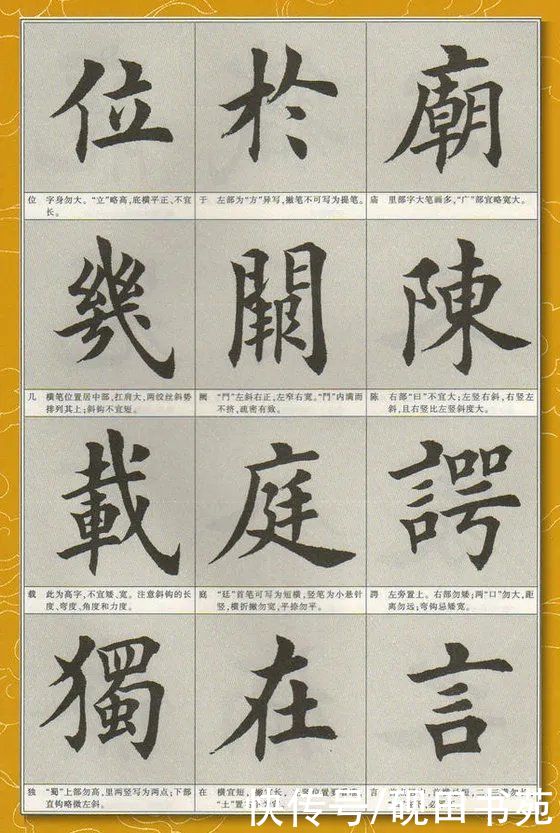 位 於 廟
位 字身勿大。“立”略高,底横平正、不宜
长。
于 左部为“方”异写,撇笔不可写为提笔。
庙 里部字大笔画多,“广”部宜略宽大。
幾 陳
几 横笔位置居中部,扛肩大,两绞丝斜势
排列其上;斜钩不宜短。
“門”左斜右正,左窄右宽。“門”内满而
不挤,疏密有致。
陈 右部“曰”不宜大;左竖右斜,右竖左
斜,且右竖比左竖斜度大。
載 庭 諤
载 此为高字,不宜矮、宽。注意斜钩的长
度、弯度、角度和力度。
庭 “廷”首笔可写为短横,竖笔为小悬针
竖,横折撇勿宽,平捺勿平。
左旁置上。右部勿矮;两“口”勿大,距
离勿远;弯钩忌矮宽。
獨 在 言
独 “蜀”上部勿高,里两竖写为两点;下部
直钩略微左斜。
在 横宜短,
“土”置
言
快传号/砚田书苑